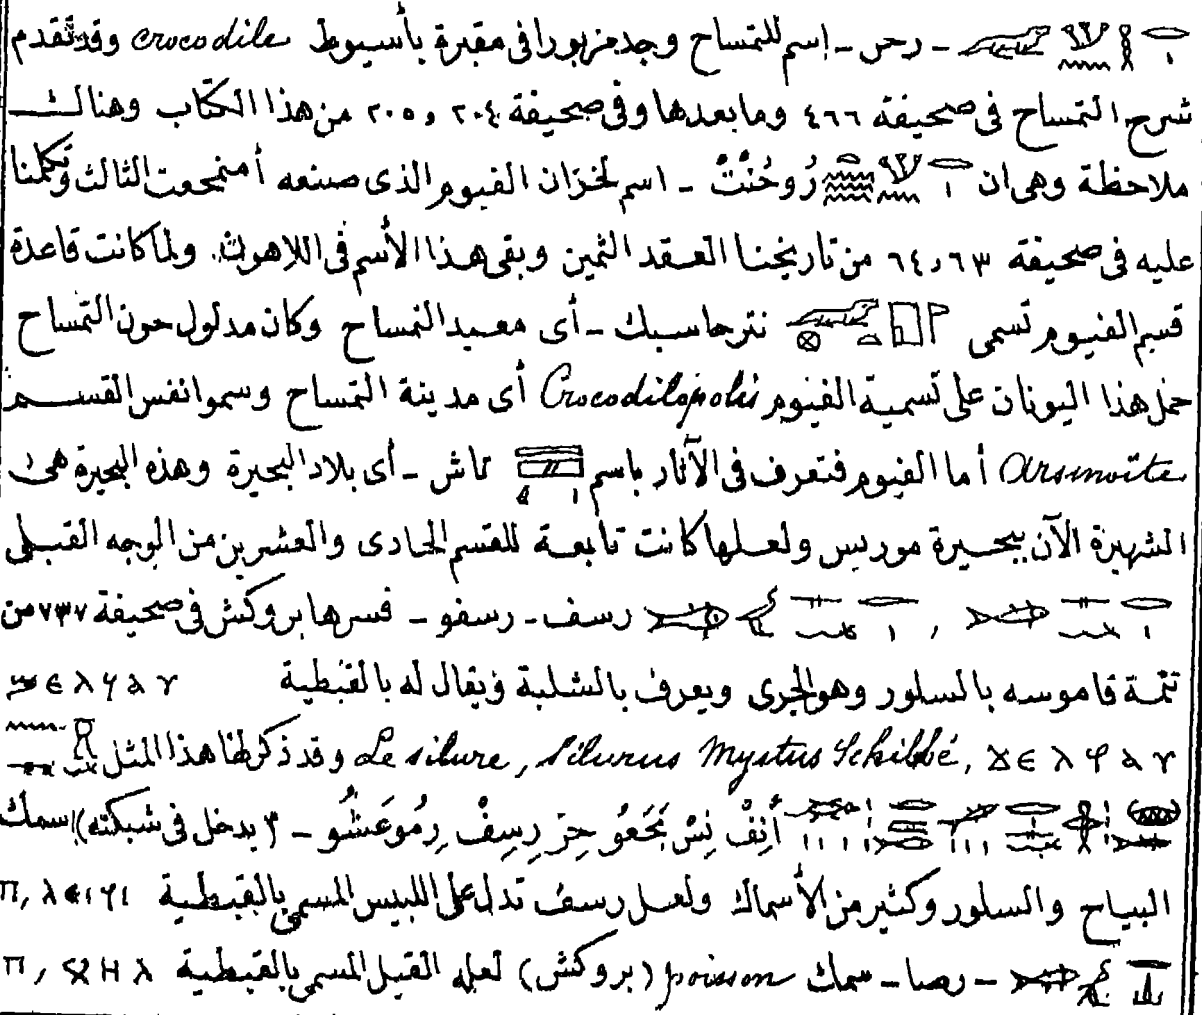 - رحن - إسم للتمساح وجد مزبورا فى مقبرة بأسيوط crocodile وقد تقدم
شرح التمساح فى صحيفة ٤٦٦ وما بعدها وفى صحيفة ٢٠٤ و ٢٠٥ من هذا الكتاب وهنالك
ملاحظة وهى ان رُوحُنْتْ - اسم لخزان الفيوم الذى صنعه أمنمحعت الثالث وتكلمنا
عليه فى صحيفة ٦٣ و ٦٤ من تاريخنا العقد الثمين وبقى هذا الأسم فى اللاهون. ولما كانت قاعدة
قسم الفيوم تسمى نترحاسبك - أى معبد التمساح وكان مدلول حون التمساح
حمل هذا اليونان على تسمية الفيوم Crocodilopolis أى مدينة التمساح وسموا نفس القسم
Arsinoïte أما الفيوم فتعرف فى الآثار باسم تاش - أى بلاد البحيرة وهذه البحيرة هى
الشهيرة الآن ببحيرة موريس ولعلها كانت تابعة للقسم الحادى والعشرين من الوجه القبلى
, رسف - رسفو - فسرها بروكش فى صحيفة ٧٣٧ من
تتمة قاموسه بالسلور وهو الجرى ويعرف بالشلبة ويقال له بالقبطية
Le silure, Silurus Mystus Schilbé, وقد ذكر لها هذا المثل
أَنِفْ نِسْ بَحَعَوُ حِرَ رِسِفْ رِمُوعَشُو - (يدخل فى شبكته) سمك
البياح والسلور وكثير من الأسماك ولعل رسف تدل على اللبيس المسمى بالقبطية
- رصا - سمك poisson (بروكش) لعله القيل المسمى بالقبطية